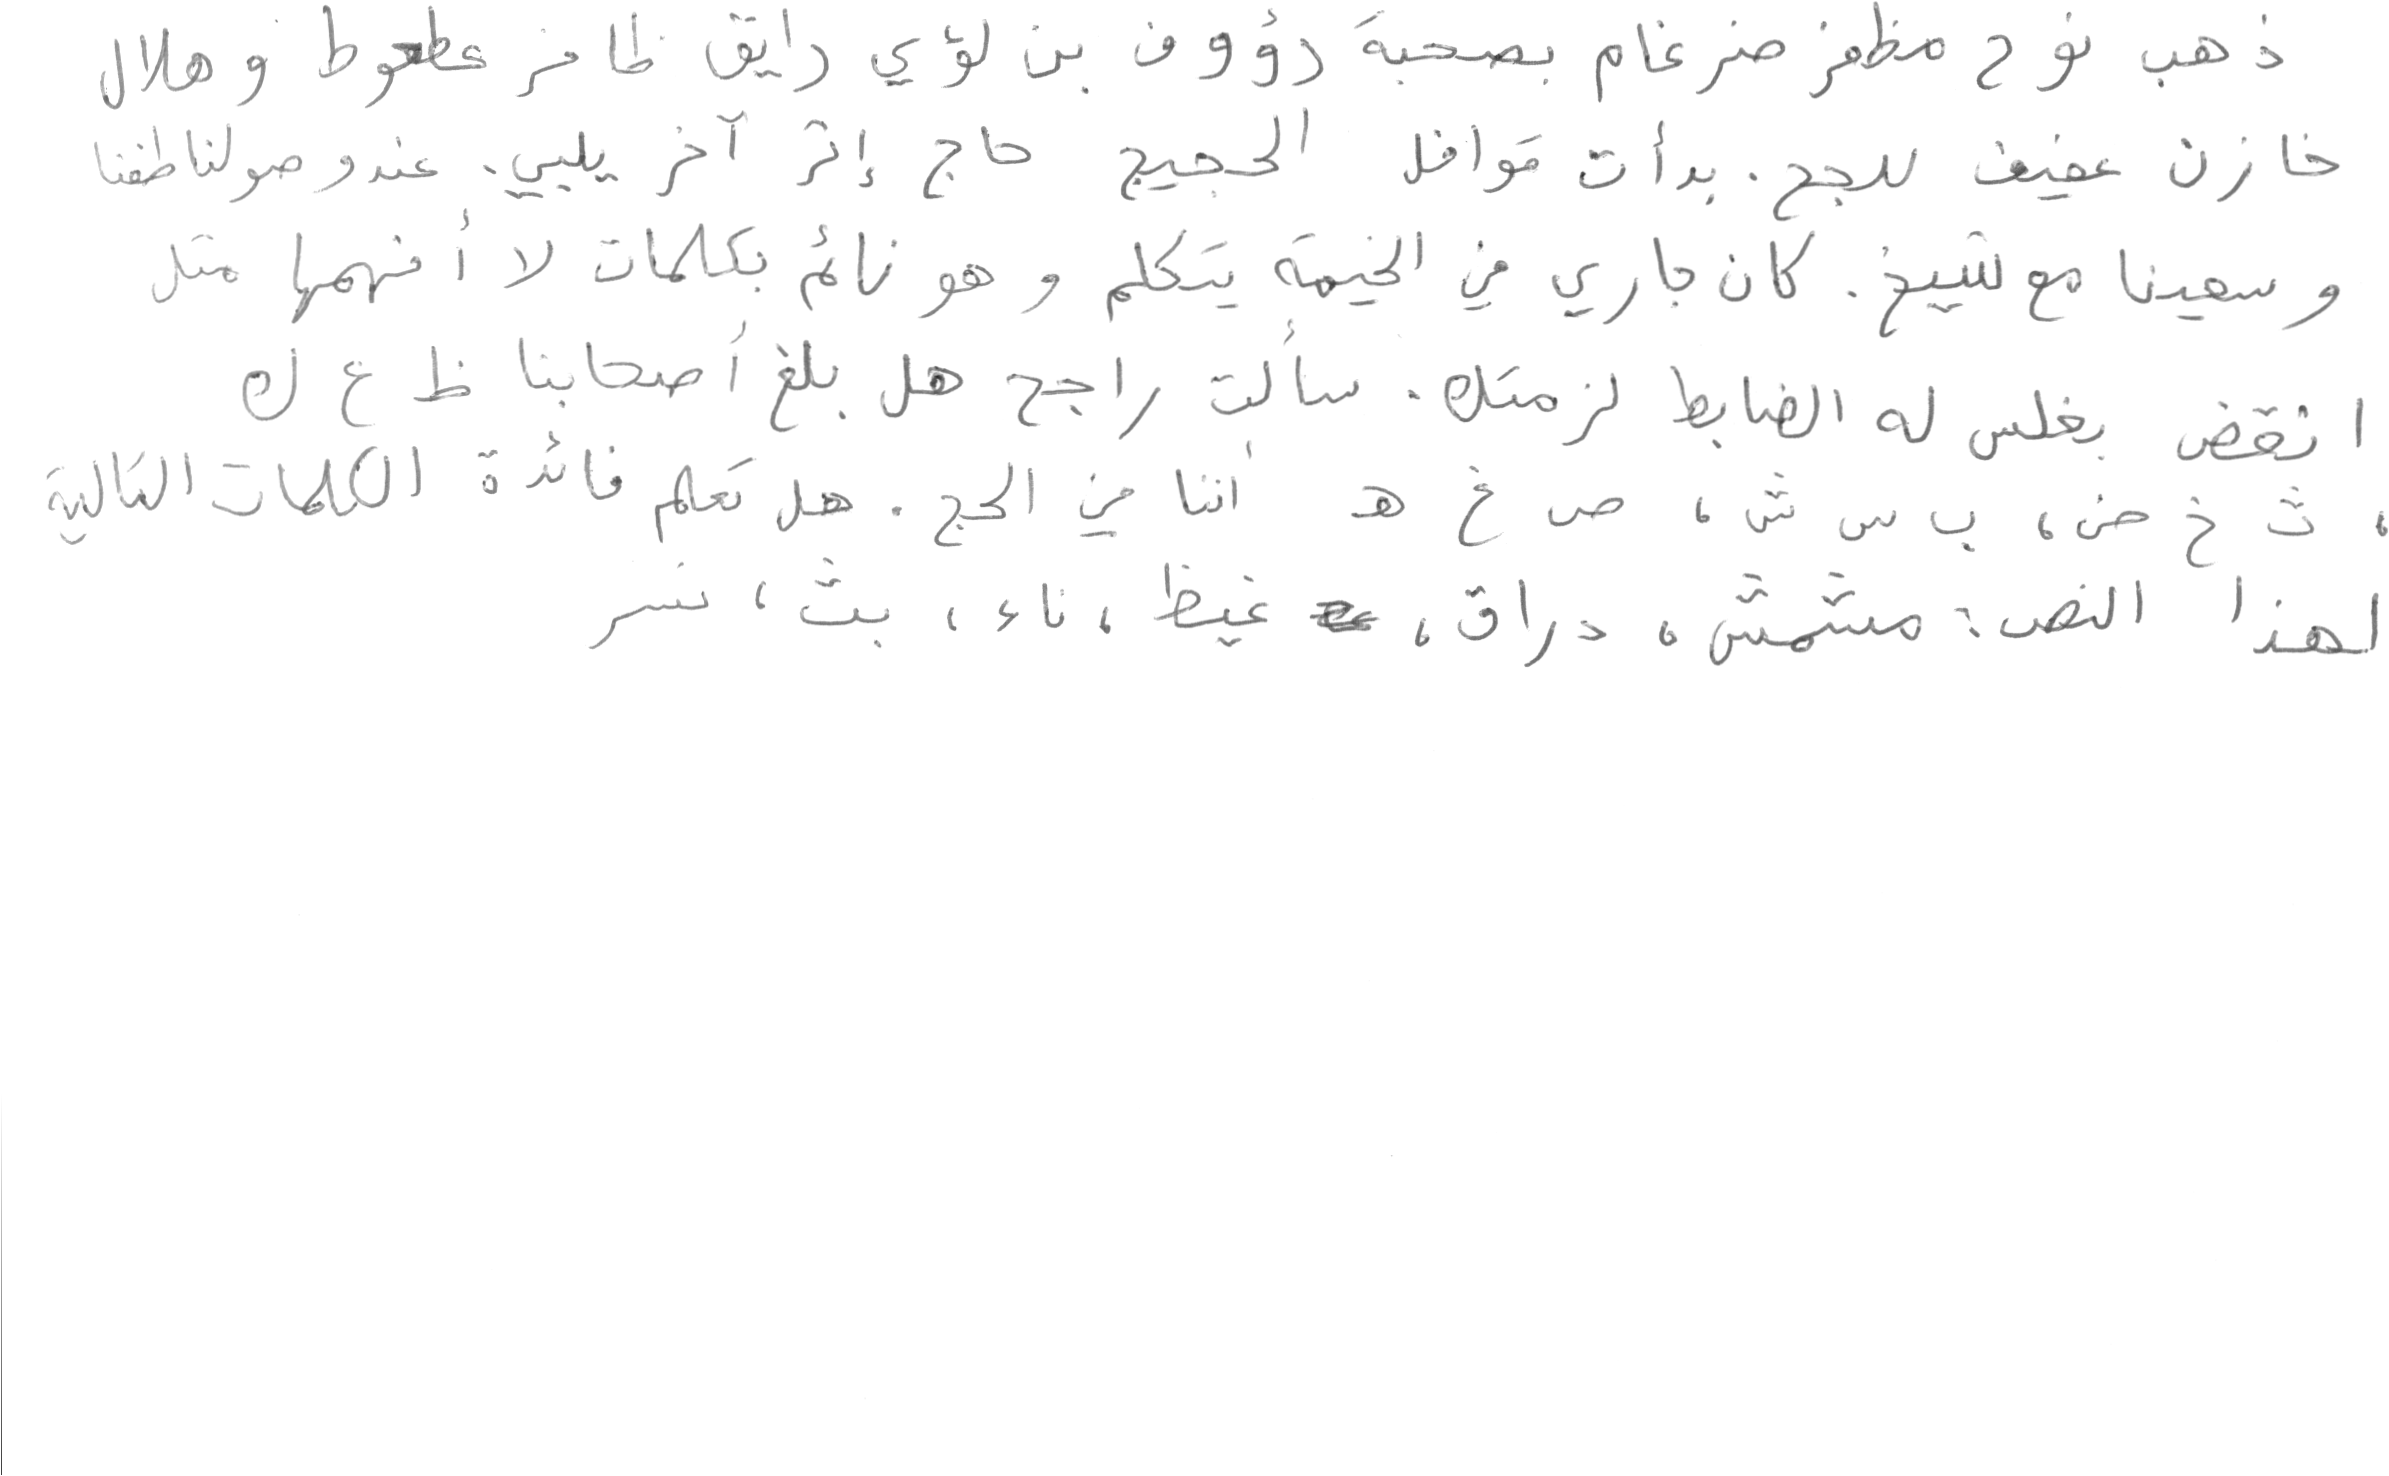 ذهب نوح مظفر ضرغام بصحبة رؤوف بن لؤي رايق ظافر عطعوط و هلال
خازن عفيف للحج . بدأت قوافل الحجيج حاج إثر آخر يلبي . عند وصولنا طفنا
و سعينا مع شيخ . كان جاري في الخيمة يتكلم و هو نائم بكلمات لا أفهمها مثل
انقض بغلس له الضابط لزمتك . سألت راجح هل بلغ أصحابنا ظ ع ك
، ث خ ض ، ب س ش ، ص غ هـ أننا في الحج . هل تعلم فائدة الكلمات التالية
لهذا النص : مشمش ، دراق ، غيظ ، ناء ، بث ، نسر